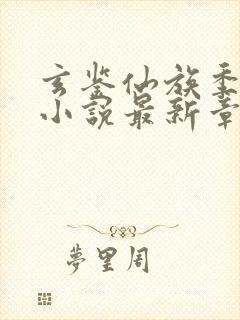 玄鉴仙族季
小説最新章
夢里周